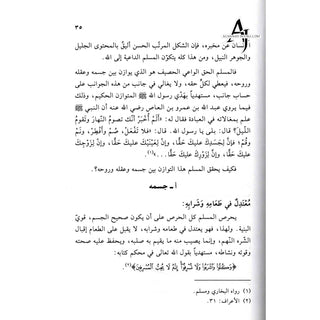 ٣٥
الإنسان عن مخبره، فإن الشكل المرتّب الحسن أليقُ بالمحتوى الجليل
والجوهر النبيل، ومن هذا كله يتكوّن المسلم الداعية إلى الله.
فالمسلم الحق الواعي الحصيف هو الذي يوازن بين جسمه وعقله
وروحه، فيعطي لكلٍّ حقه، ولا يغالي في جانب من هذه الجوانب على
حساب جانب، مستهدياً بهَدْي رسول الله ﷺ المتوازن الحكيم، وذلك
فيما يروي عبد الله بن عمرو بن العاص رضي الله عنه أن النبي ﷺ
علم بمغالاته في العبادة فقال له: «أَلَمْ أُخْبَرْ أَنَّكَ تَصُومُ النَّهَارَ وَتَقُومُ
اللَّيْلَ؟» قال: بلى يا رسول الله. قال: «فلا تَفْعَلْ، صُمْ وأَفْطِرْ، وَنَمْ
وقُمْ، فإنَّ لِجَسَدِكَ عليكَ حَقًّا، وإنَّ لِعَيْنَيْكَ عليكَ حَقًّا، وإنَّ لِزَوْجِكَ
عليكَ حَقًّا، وإنَّ لِزَوْرِكَ عليكَ حَقًّا...»(١).
فكيف يحقق المسلم هذا التوازن بين جسمه وعقله وروحه؟.
أ ـ جسمه
مُعْتَدِلٌ في طَعامِهِ وشَرابِهِ:
يحرص المسلم كل الحرص على أن يكون صحيح الجسم، قويّ
البنية. ولهذا، فهو يعتدل في طعامه وشرابه، لا يقبل على الطعام إقبال
الشَّرِه النَّهِم، وإنما يصيب منه ما يقيم به صلبه، ويحفظ عليه صحته
وقوته ونشاطه، مستهدياً بقول الله تعالى في محكم كتابه:
﴿وَكُلُوا وَاشْرَبُوا وَلَا تُسْرِفُوا إِنَّهُ لَا يُحِبُّ الْمُسْرِفِينَ﴾(٢).
(١) رواه البخاري ومسلم.
(٢) الأعراف: ٣١.